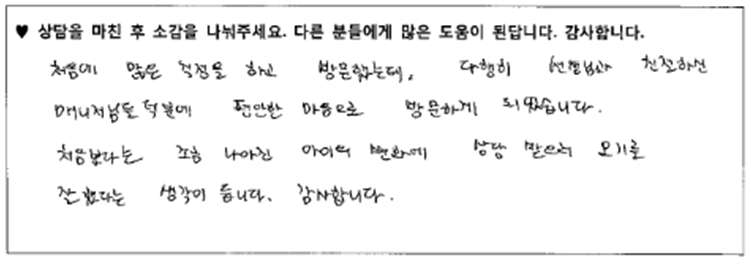 ♥ 상담을 마친 후 소감을 나눠주세요. 다른 분들에게 많은 도움이 된답니다. 감사합니다.
처음에 많은 걱정을 하고 방문했는데, 다행히 선생님과 친절하신
매니저님들 덕분에 편안한 마음으로 방문하게 되었습니다.
처음보다는 조금 나아진 아이의 변화에 상담 받으러 오기를
잘 했다는 생각이 듭니다. 감사합니다.